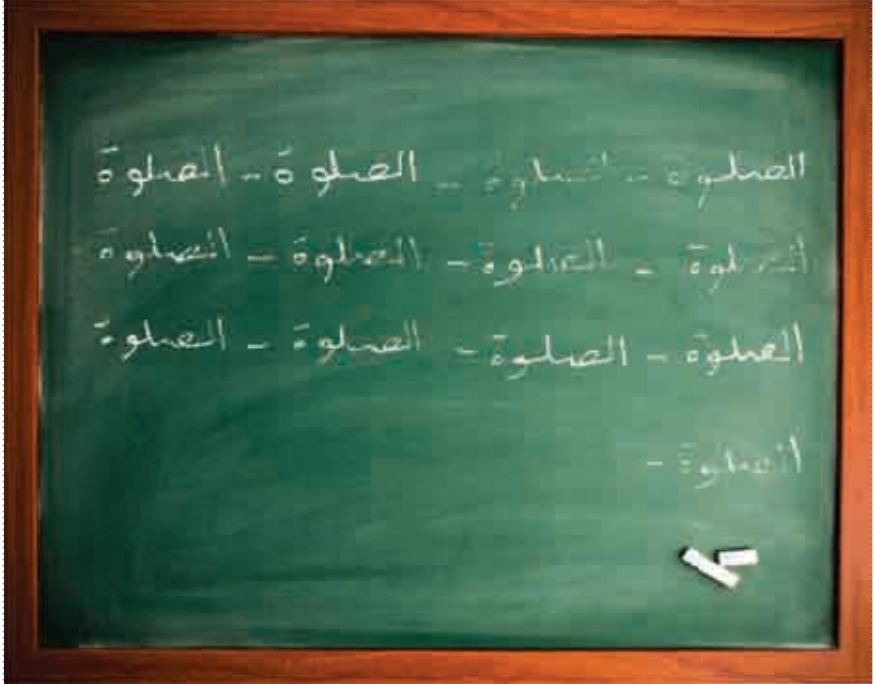 الصلوة - الصلوة - الصلوة - الصلوة
الصلوة - الصلوة - الصلوة - الصلوة
الصلوة - الصلوة - الصلوة - الصلوة
الصلوة -